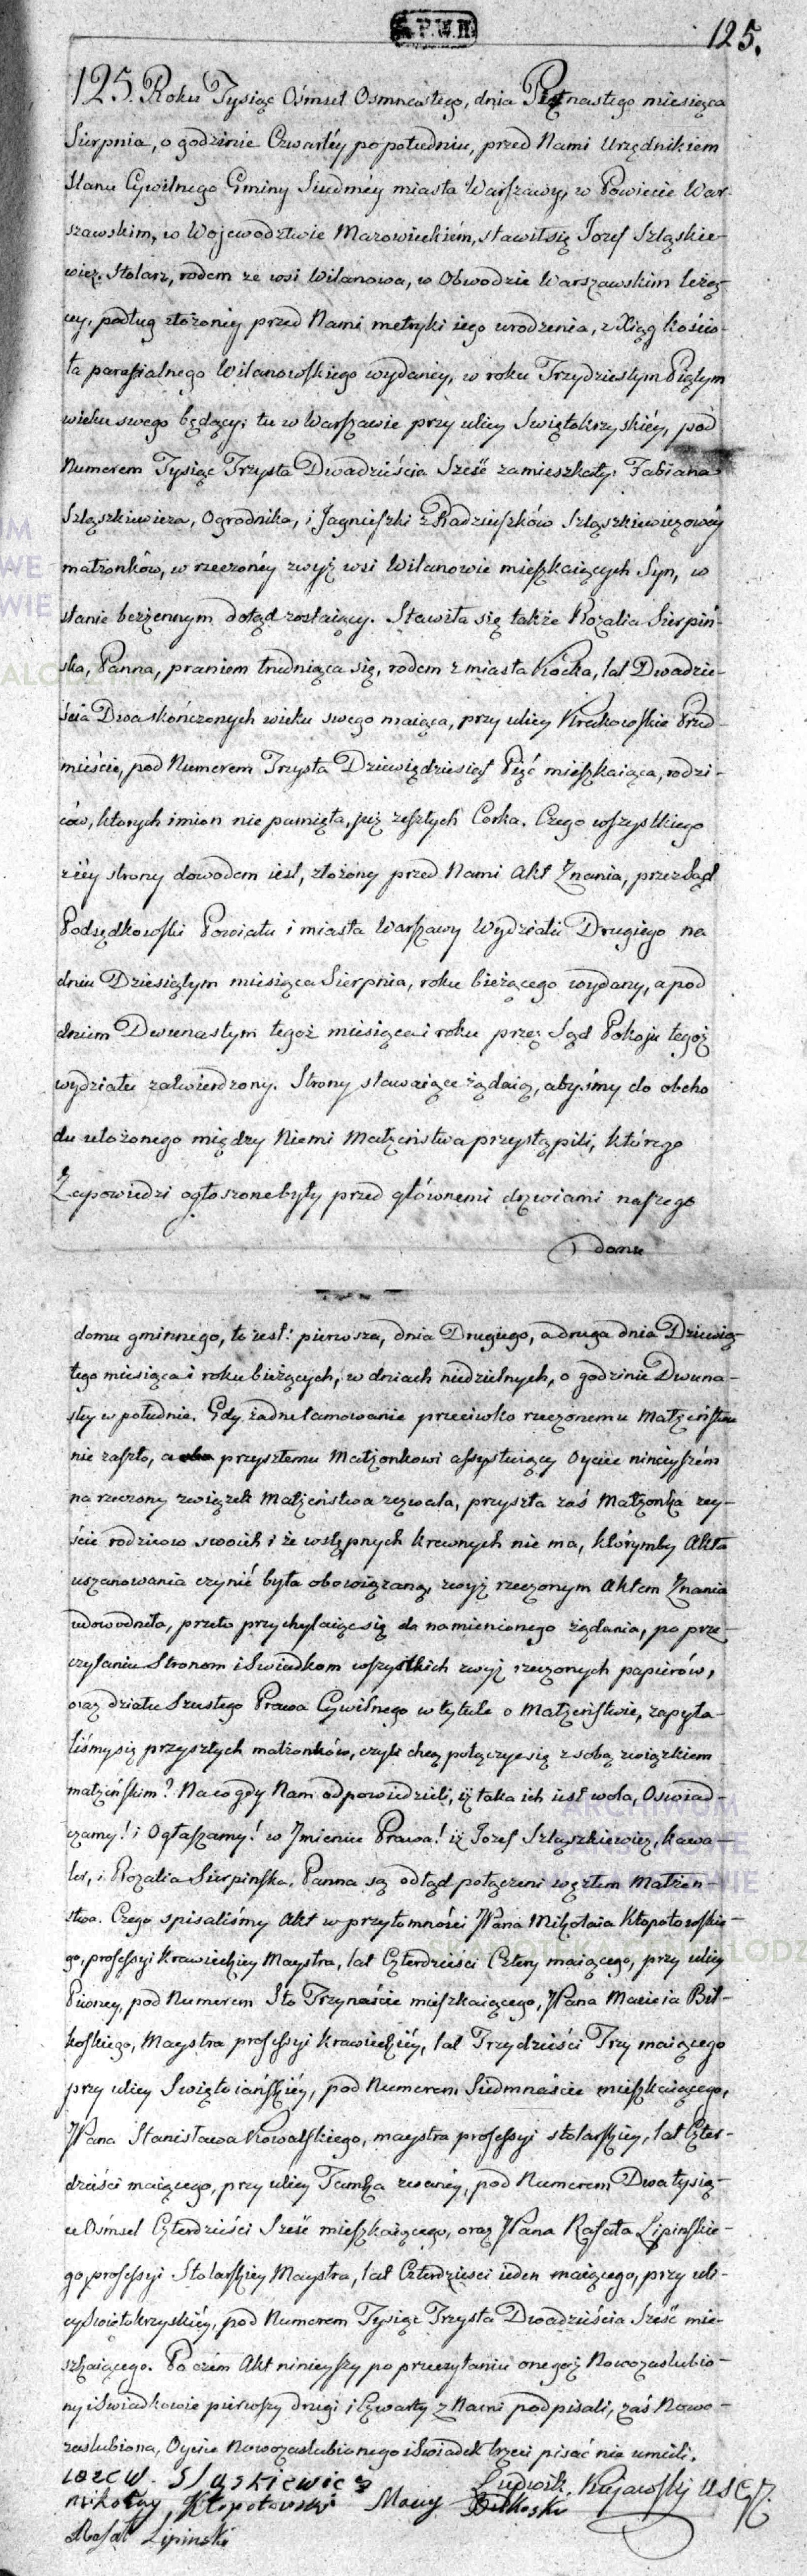 125.
125. Roku Tysiąc Ośmset Osmnastego, dnia Piętnastego miesiąca
Sierpnia, o godzinie Czwartéy po południu, przed Nami Urzędnikiem
Stanu Cywilnego Gminy Siudméy miasta Warszawy, w Powiecie War-
szawskim, w Wojewodztwie Mazowieckiém, stawił się Jozef Szląskie-
wicz, Stolarz, rodem ze wsi Wilanowa, w Obwodzie Warszawskim leżą-
cey, podług złożoney przed Nami metryki iego urodzenia, z Xiąg kościo-
ła parafialnego Wilanowskiego wydaney, w roku Trzydziestym Piątym
wieku swego będący; tu w Warszawie przy ulicy Swiętokrzyskiéy, pod
Numerem Tysiąc Trzysta Dwadzieścia Sześć zamieszkały; Fabiana
Szląszkiewicza, Ogrodnika, i Jagnieszki z Radziuszków Szląszkiewiczowéy
małżonków, w rzeczonéy zwyż wsi Wilanowie mieszkaiących Syn, w
stanie bezżennym dotąd zostaiący. Stawiła się także Rozalia Sierpiń-
ska, Panna, praniem trudniąca się, rodem z miasta Kocka, lat Dwadzie-
ścia Dwa skończonych wieku swego maiąca, przy ulicy Krakowskie Przed-
mieście, pod Numerem Trzysta Dziewiędziesiąt Pięć mieszkaiąca, rodzi-
ców, których imion nie pamięta, już zeszłych Corka. Czego wszystkiego
z iéy strony dowodem iest, złożony przed Nami Akt Znania, przez Sąd
Podsędkowski Powiatu i miasta Warszawy Wydziału Drugiego na
dniu Dziesiątym miesiąca Sierpnia, roku bieżącego wydany, a pod
dniem Dwunastym tegoż miesiąca i roku przez Sąd Pokoju tegoż
wydziału zatwierdzony. Strony stawaiące żądaią, abyśmy do obcho
du ułożonego między Niemi Małżeństwa przystąpili, którego
Zapowiedzi ogłoszone były przed głównemi drzwiami naszego
domu
domu gminnego, to iest: pierwsza, dnia Drugiego, a druga dnia Dziewią-
tego miesiąca i roku bieżących, w dniach niedzielnych, o godzinie Dwuna-
stey w południe. Gdy żadne tamowanie przeciwko rzeczonemu Małżeństwu
nie zaszło, a przyszłemu Małżonkowi assystuiący Oyciec ninieyszém
na rzeczony związek Małżeństwa zezwala, przyszła zaś Małżonka zey-
ście rodzicow swoich i że wstępnych krewnych nie ma, którymby Akta
uszanowania czynić była obowiązaną, zwyż rzeczonym Aktem Znania
udowodniła, przeto przychylaiąc się do namienionego żądania, po prze-
czytaniu Stronom i Swiadkom wszystkich zwyż rzeczonych papierów,
oraz działu Szustego Prawa Cywilnego w tytule o Małżeństwie, zapyta-
liśmy się przyszłych małżonków, czyli chcą połączyć się z sobą związkiem
małżeńskim? Na co gdy Nam odpowiedzieli, iż taka ich iest wola, Oswiad-
czamy! i Ogłaszamy! w Jmieniu Prawa! iż Jozef Szląszkiewicz, kawa-
ler, i Rozalia Sierpińska, Panna są odtąd połączeni węzłem Małżeń-
stwa. Czego spisaliśmy Akt w przytomności JPana Mikołaia Kłopotowskie-
go, professyi krawieckiey Maystra, lat Czterdzieści Cztery maiącego, przy ulicy
Piwney, pod Numerem Sto Trzynaście mieszkaiącego, JPana Macieia Bił-
koskiego, Maystra professyi krawieckiéy, lat Trzydzieści Trzy maiącego
przy ulicy Swiętoiańskiéy, pod Numerem Siedmnaście mieszkaiącego,
JPana Stanisława Kowalskiego, maystra professyi stolarskiey, lat Czter-
dzieści maiącego, przy ulicy Tamka zwanéy, pod Numerem Dwa tysią-
ce Ośmset Czterdzieści Sześć mieszkaiącego, oraz JPana Rafała Lipinskie-
go, professyi Stolarskiey Maystra, lat Czterdzieści ieden maiącego, przy uli-
cy Swiętokrzyskiéy, pod Numerem Tysiąc Trzysta Dwadzieścia Sześć mie-
szkaiącego. Po czém Akt ninieyszy po przeczytaniu onegoż Nowozaslubio-
ny i Swiadkowie pierwszy drugi i Czwarty z Nami podpisali, zaś Nowo-
zaslubiona, Oyciec Nowozaslubionego i Swiadek trzeci pisać nie umieli.
Iozew Sląskiewicz Ludwik Kujawski USC
Mikołay Kłopotowski Macy Biłkoski
Rafał Lipinski